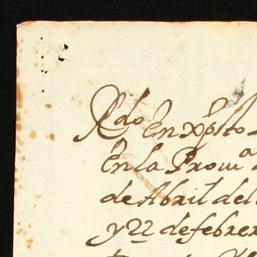 Rdo En Xpto
En la Prouª
de Abril del
y 22 de febrer